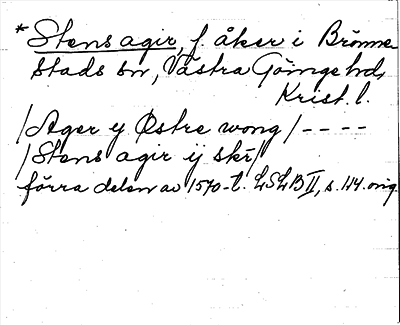 * Stens agir, f. åker i Brönne-
stads sn, Västra Göinge hd,
Krist. l.
/Ager y Østre wong/ – – – –
/Stens agir ij skr/
förra delen av 1570-t. LSLB II, s. 114. orig.